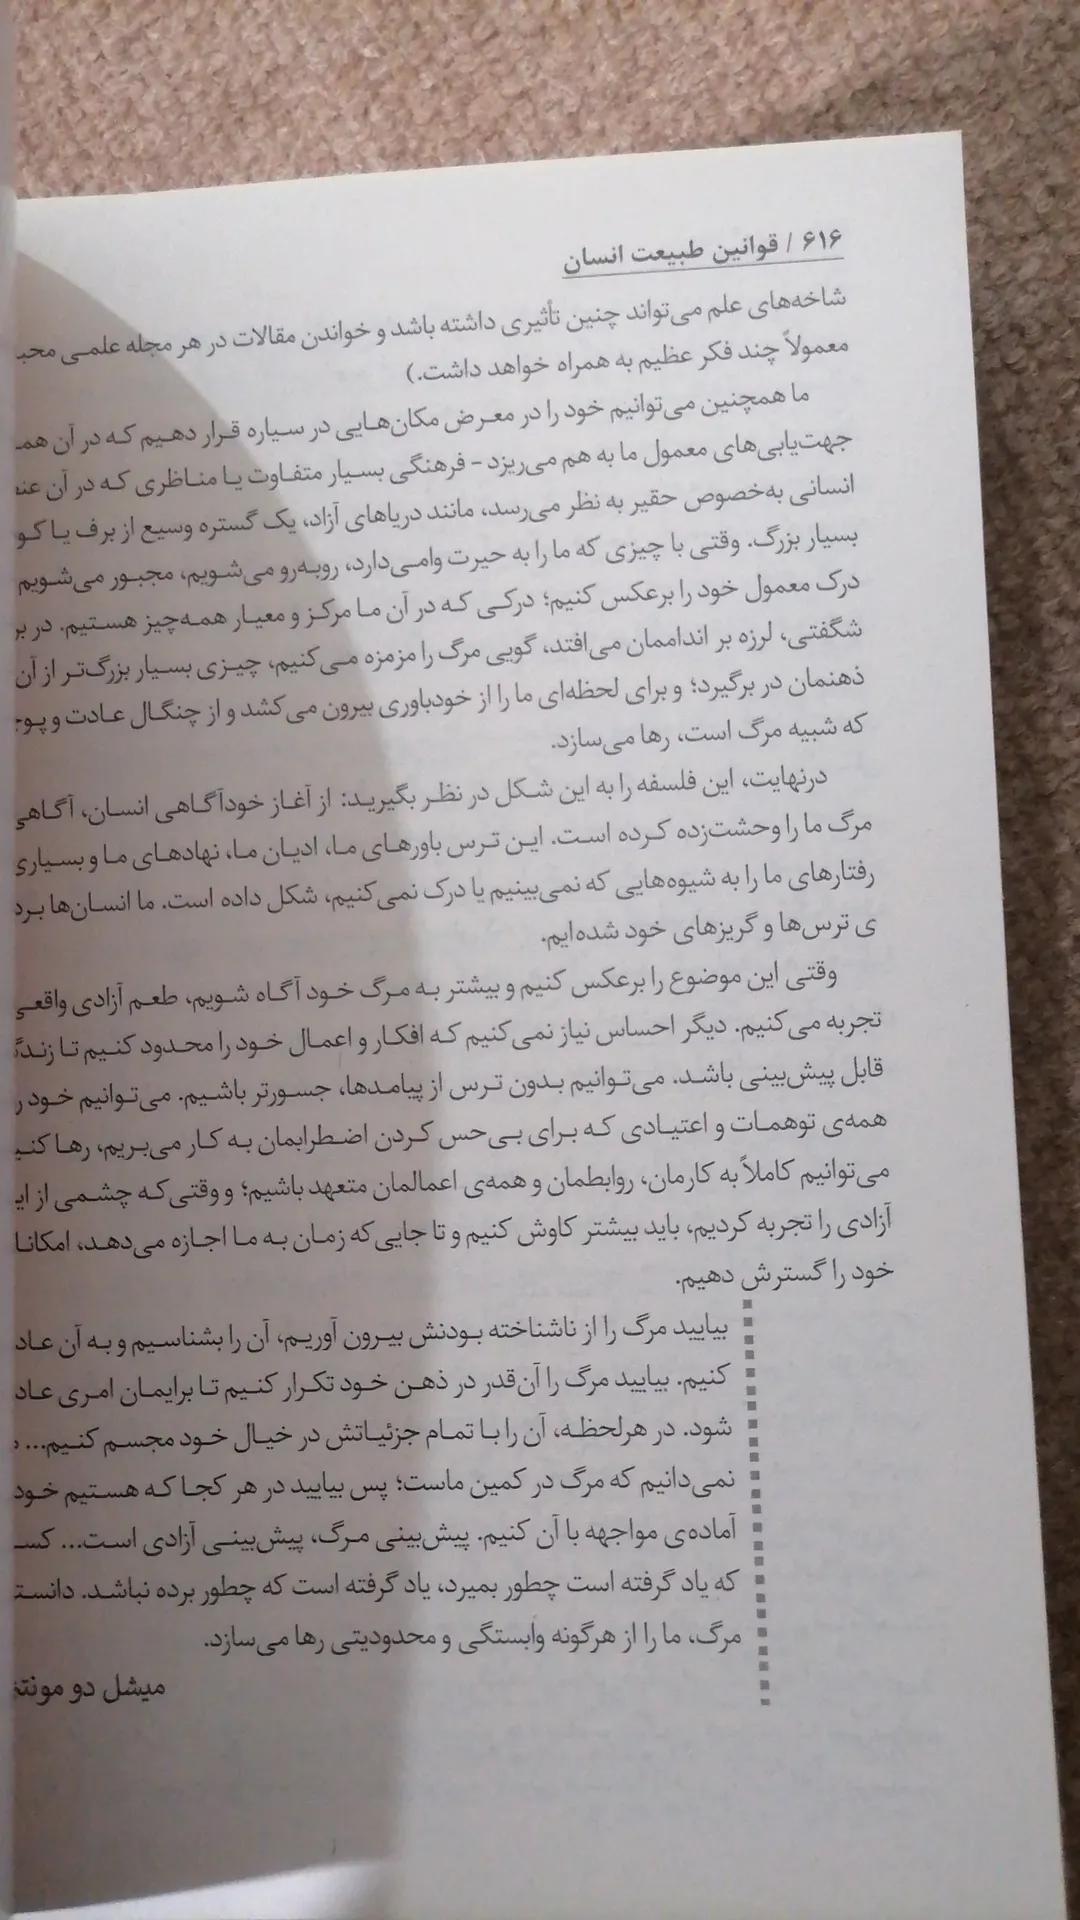 ۶۱۶ / قوانین طبیعت انسان
شاخه‌های علم می‌تواند چنین تأثیری داشته باشد و خواندن مقالات در هر مجله علمی
معمولاً چند فکر عظیم به همراه خواهد داشت.)
ما همچنین می‌توانیم خود را در معرض مکان‌هایی در سیاره قرار دهیم که در آن
جهت‌یابی‌های معمول ما به هم می‌ریزد - فرهنگی بسیار متفاوت یا مناظری که در آن
انسانی به‌خصوص حقیر به نظر می‌رسد، مانند دریاهای آزاد، یک گستره وسیع از برف یا
بسیار بزرگ. وقتی با چیزی که ما را به حیرت وامی‌دارد، روبه‌رو می‌شویم، مجبور می‌شویم
درک معمول خود را برعکس کنیم؛ درکی که در آن ما مرکز و معیار همه‌چیز هستیم. در
شگفتی، لرزه بر انداممان می‌افتد، گویی مرگ را مزمزه می‌کنیم، چیزی بسیار بزرگ‌تر از آن
ذهنمان در برگیرد؛ و برای لحظه‌ای ما را از خودباوری بیرون می‌کشد و از چنگال عادت و
که شبیه مرگ است، رها می‌سازد.
درنهایت، این فلسفه را به این شکل در نظر بگیرید: از آغاز خودآگاهی انسان، آگاهی
مرگ ما را وحشت‌زده کرده است. این ترس باورهای ما، ادیان ما، نهادهای ما و بسیاری
رفتارهای ما را به شیوه‌هایی که نمی‌بینیم یا درک نمی‌کنیم، شکل داده است. ما انسان‌ها
ی ترس‌ها و گریزهای خود شده‌ایم.
وقتی این موضوع را برعکس کنیم و بیشتر به مرگ خود آگاه شویم، طعم آزادی واقعی
تجربه می‌کنیم. دیگر احساس نیاز نمی‌کنیم که افکار و اعمال خود را محدود کنیم تا
قابل پیش‌بینی باشد. می‌توانیم بدون ترس از پیامدها، جسورتر باشیم. می‌توانیم خود
همه‌ی توهمات و اعتیادی که برای بی‌حس کردن اضطرابمان به کار می‌بریم، رها
می‌توانیم کاملاً به کارمان، روابطمان و همه‌ی اعمالمان متعهد باشیم؛ و وقتی که چشمی از
آزادی را تجربه کردیم، باید بیشتر کاوش کنیم و تا جایی که زمان به ما اجازه می‌دهد،
خود را گسترش دهیم.
بیایید مرگ را از ناشناخته بودنش بیرون آوریم، آن را بشناسیم و به آن
کنیم. بیایید مرگ را آن‌قدر در ذهن خود تکرار کنیم تا برایمان امری
شود. در هرلحظه، آن را با تمام جزئیاتش در خیال خود مجسم کنیم...
نمی‌دانیم که مرگ در کمین ماست؛ پس بیایید در هر کجا که هستیم خود
آماده‌ی مواجهه با آن کنیم. پیش‌بینی مرگ، پیش‌بینی آزادی است...
که یاد گرفته است چطور بمیرد، یاد گرفته است که چطور برده نباشد.
مرگ، ما را از هرگونه وابستگی و محدودیتی رها می‌سازد.
میشل دو